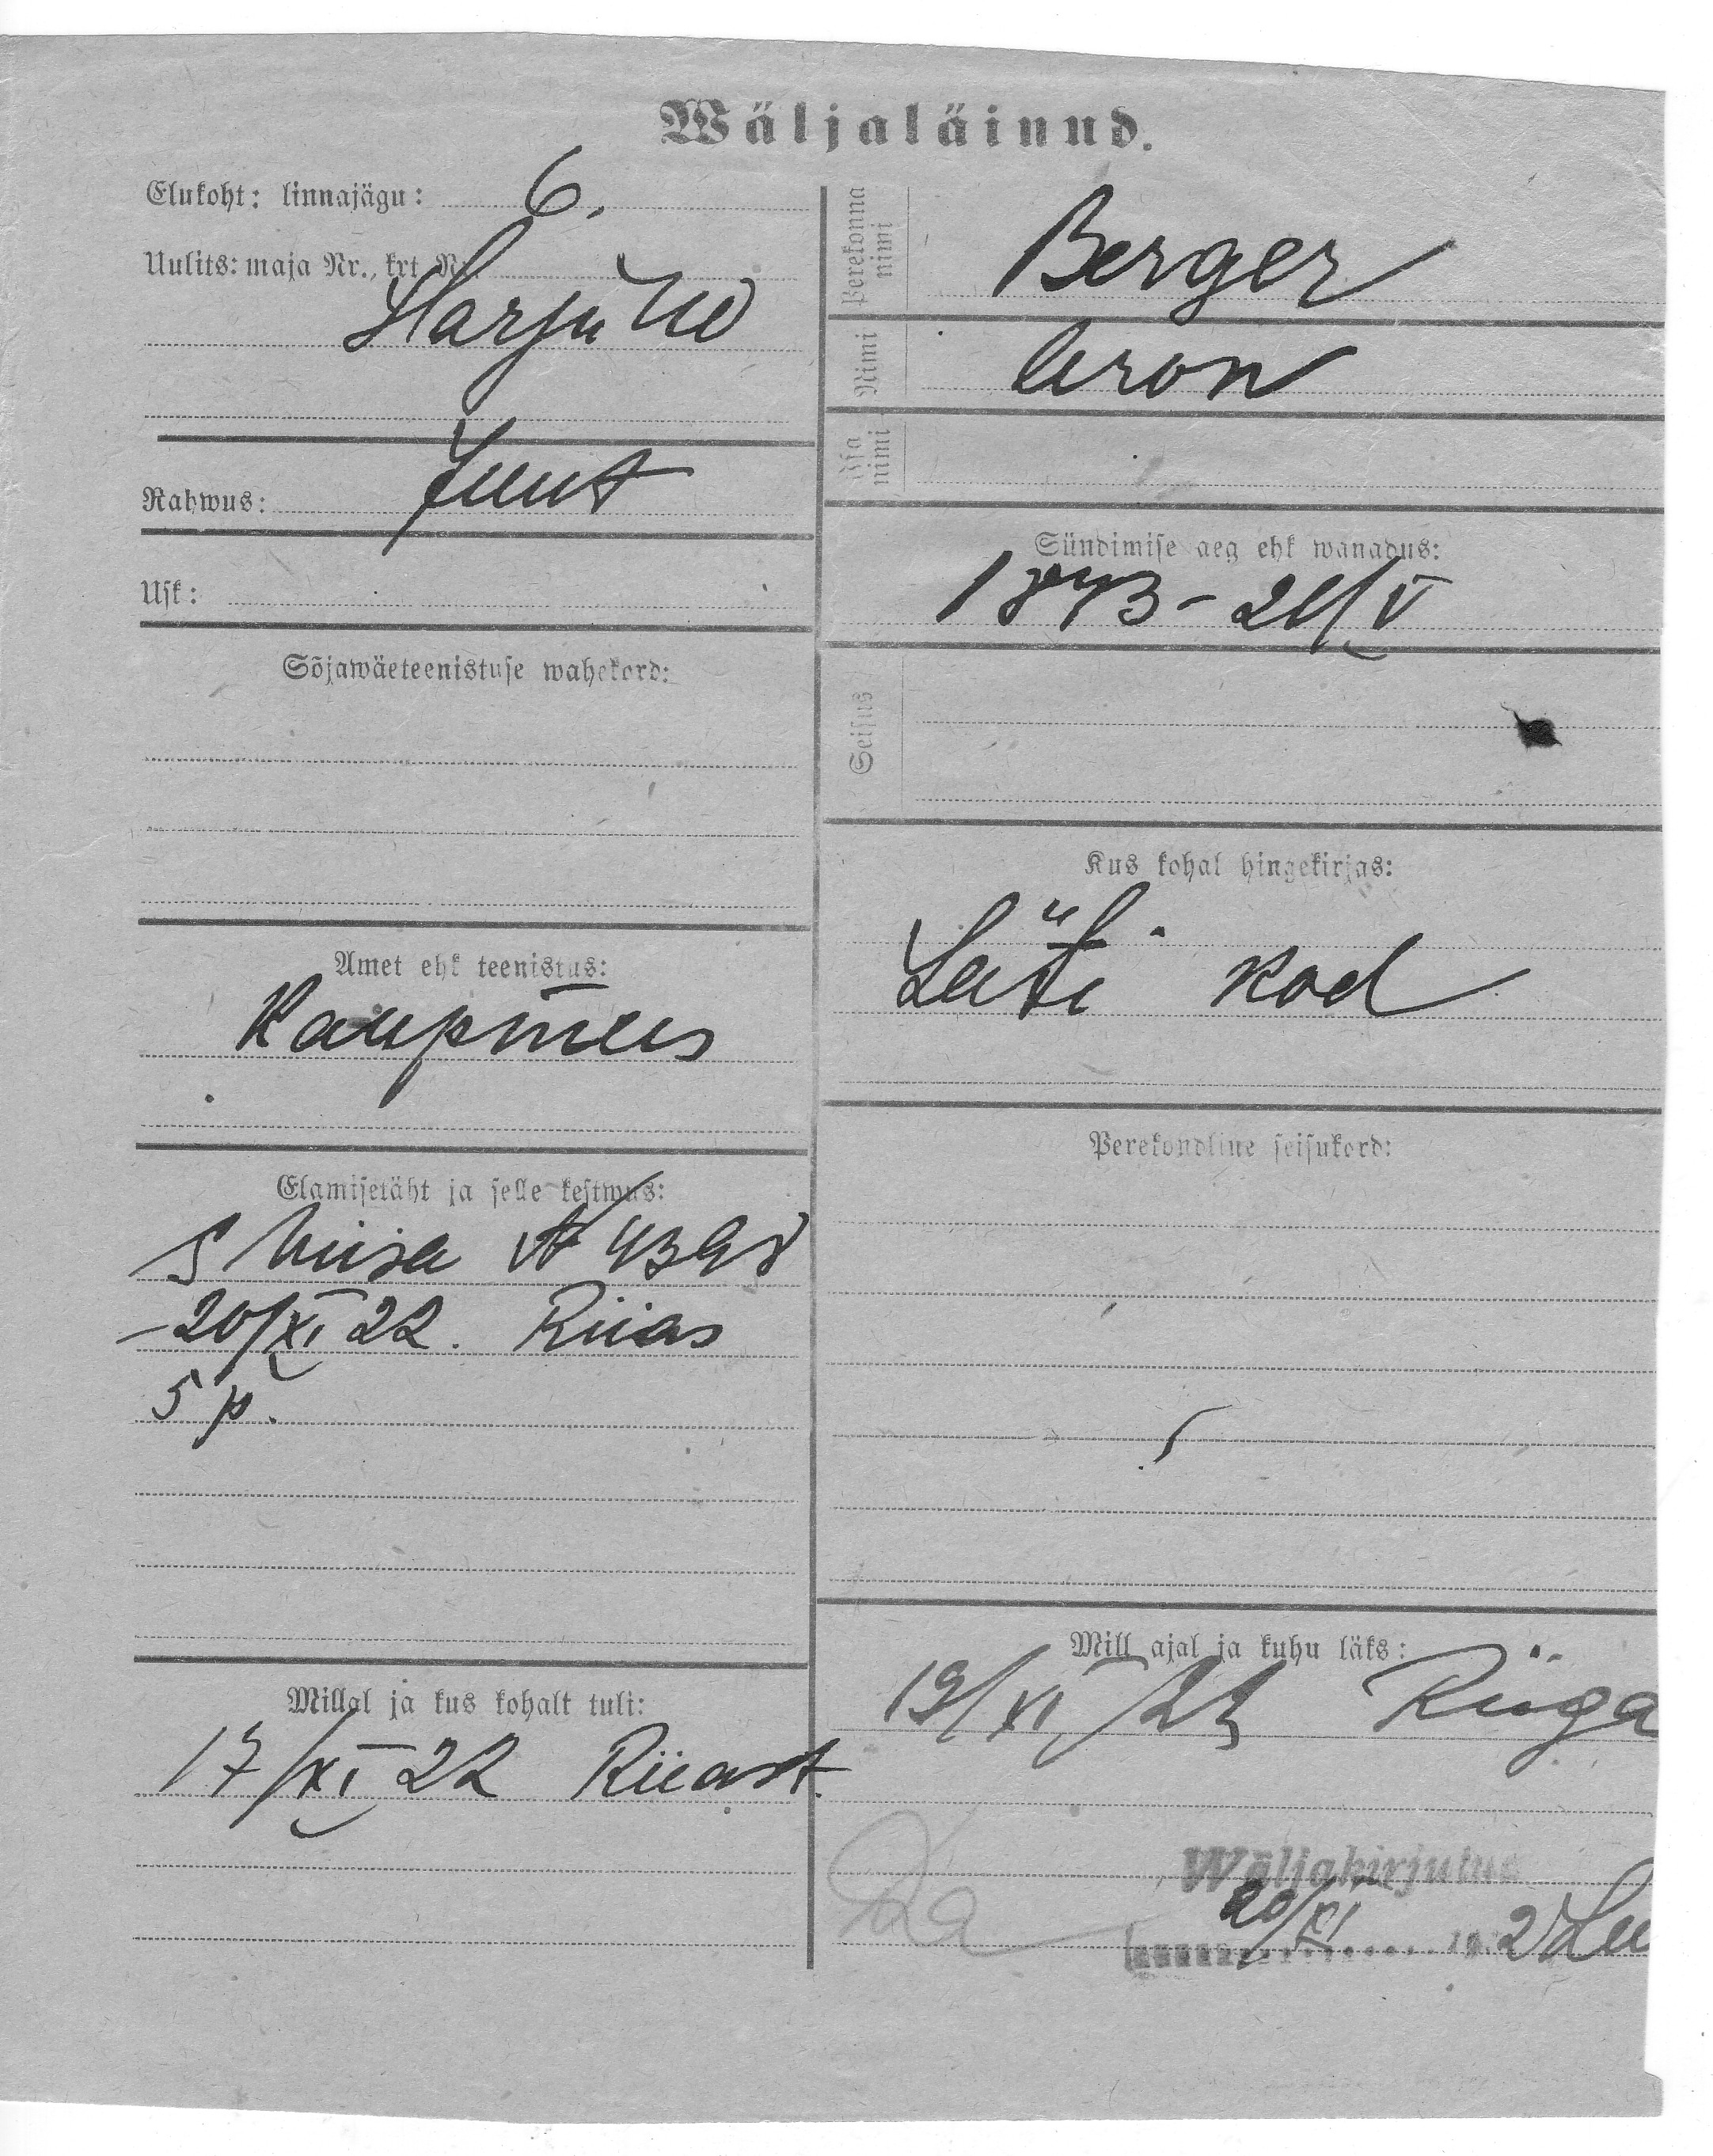 Wäljaläinud.
Elukoht: linnajägu: 6.
Uulits: maja Nr., krt. Nr.
Harju
Rahwus: Juut
Usk:
Sõjawäeteenistuse wahekord:
Amet ehk teenistus:
Kaupmees
Elamisetäht ja selle kestwus:
S Wiisa № 4398
- 20/XI 22. Riias
5 p.
Millal ja kus kohalt tuli:
17/XI 22 Riiast.
Perekonna nimi
Berger
Nimi
Aron
Isa nimi
Sündimise aeg ehk wanadus:
1873 - 21/V
Seisus
Kus kohal hingekirjas:
Läti kod
Perekondline seisukord:
Mill ajal ja kuhu läks:
19/XI 22 Riiga
Wäljakirjutud
20/XI 192